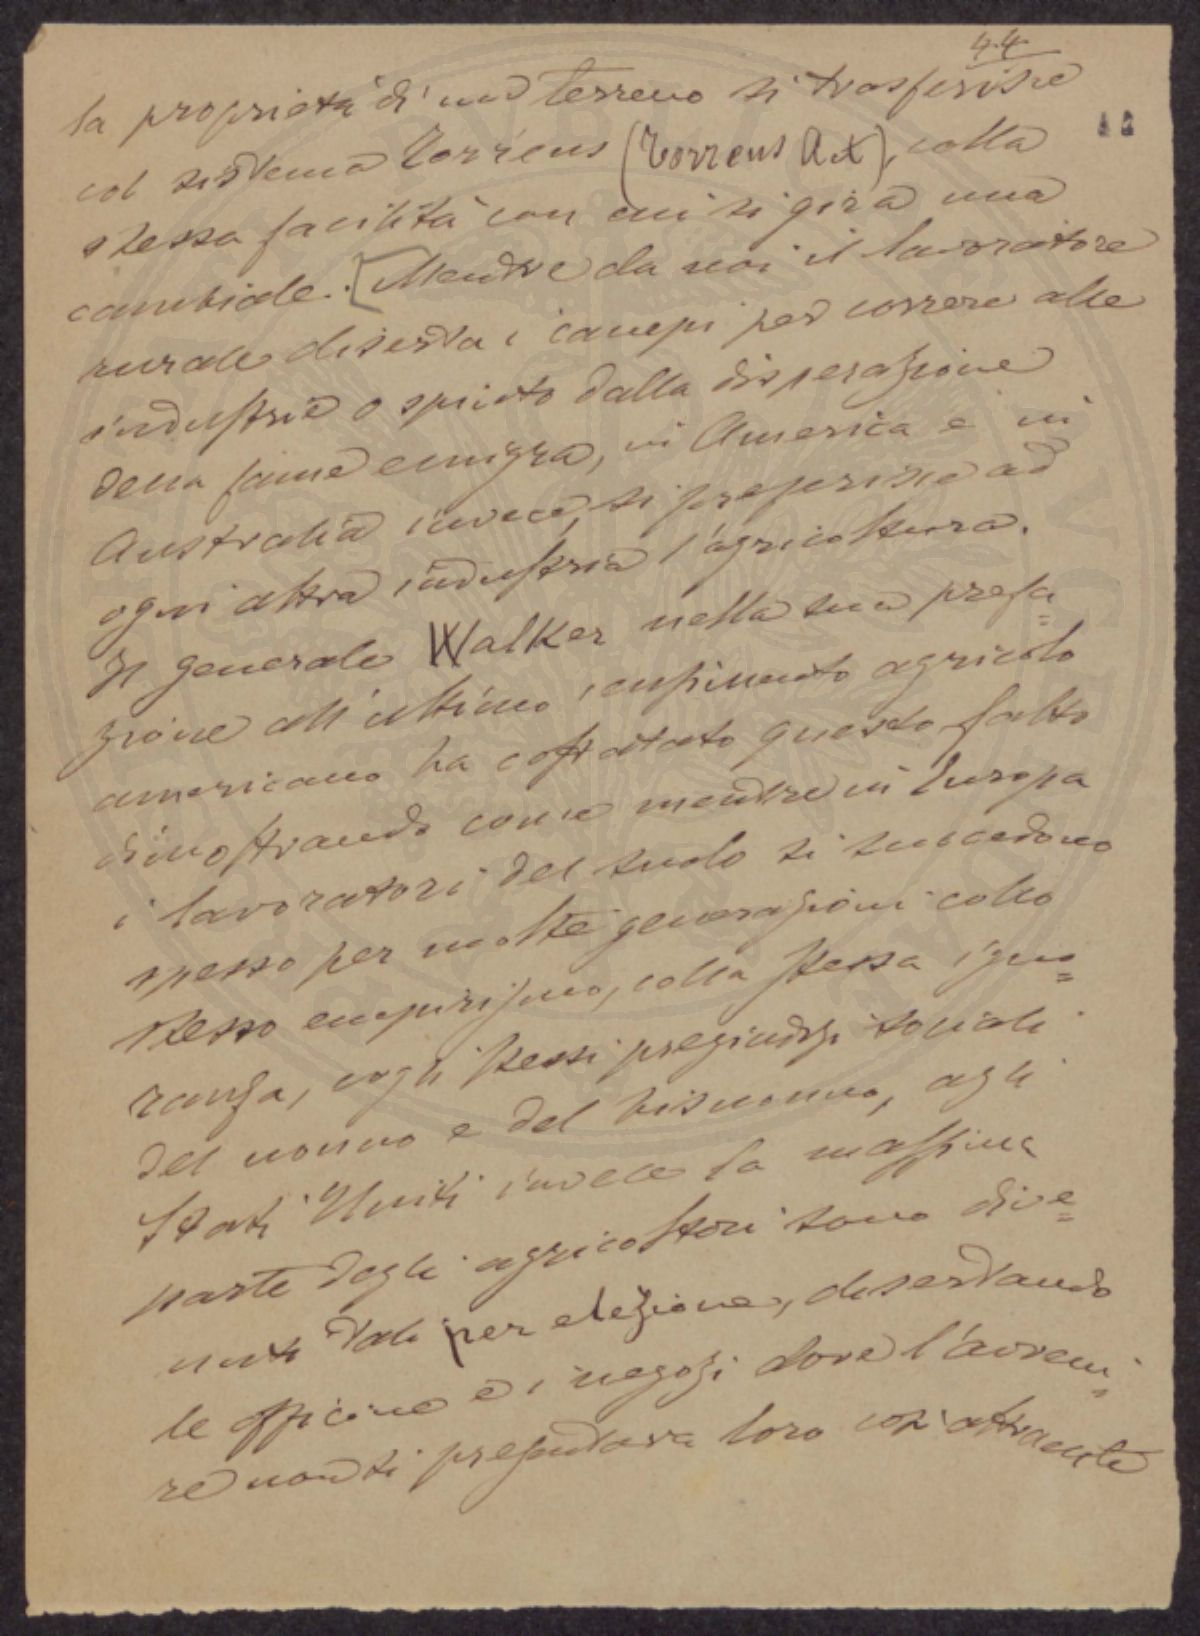 44
la proprietà di un terreno si trasferisce
col sistema Torrens (Torrens Act), colla
stessa facilità con cui si gira una
cambiale. [Mentre da noi il lavoratore
rurale diserta i campi per correre alle
industrie o spinto dalla disperazione
della fame emigra, in America e in
Australia invece, si preferisce ad
ogni altra industria l'agricoltura.
Il generale Walker nella sua prefa=
zione all'ultimo censimento agricolo
americano ha costatato questo fatto
dimostrando come mentre in Europa
i lavoratori del suolo si succedono
spesso per molte generazioni collo
stesso empirismo, colla stessa igno=
ranza, cogli stessi pregiudizi sociali
del nonno e del bisnonno, agli
Stati Uniti invece la massima
parte degli agricoltori sono dive=
nuti tali per elezione, disertando
le officine e i negozi dove l'avveni=
re non si presentava loro così attraente